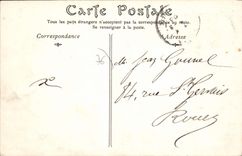 Carte Postale
Tous les pays étrangers n'acceptent pas la correspondance au recto.
Se renseigner à la poste.
Correspondance
Adresse
84, rue St Gervais
Rouen